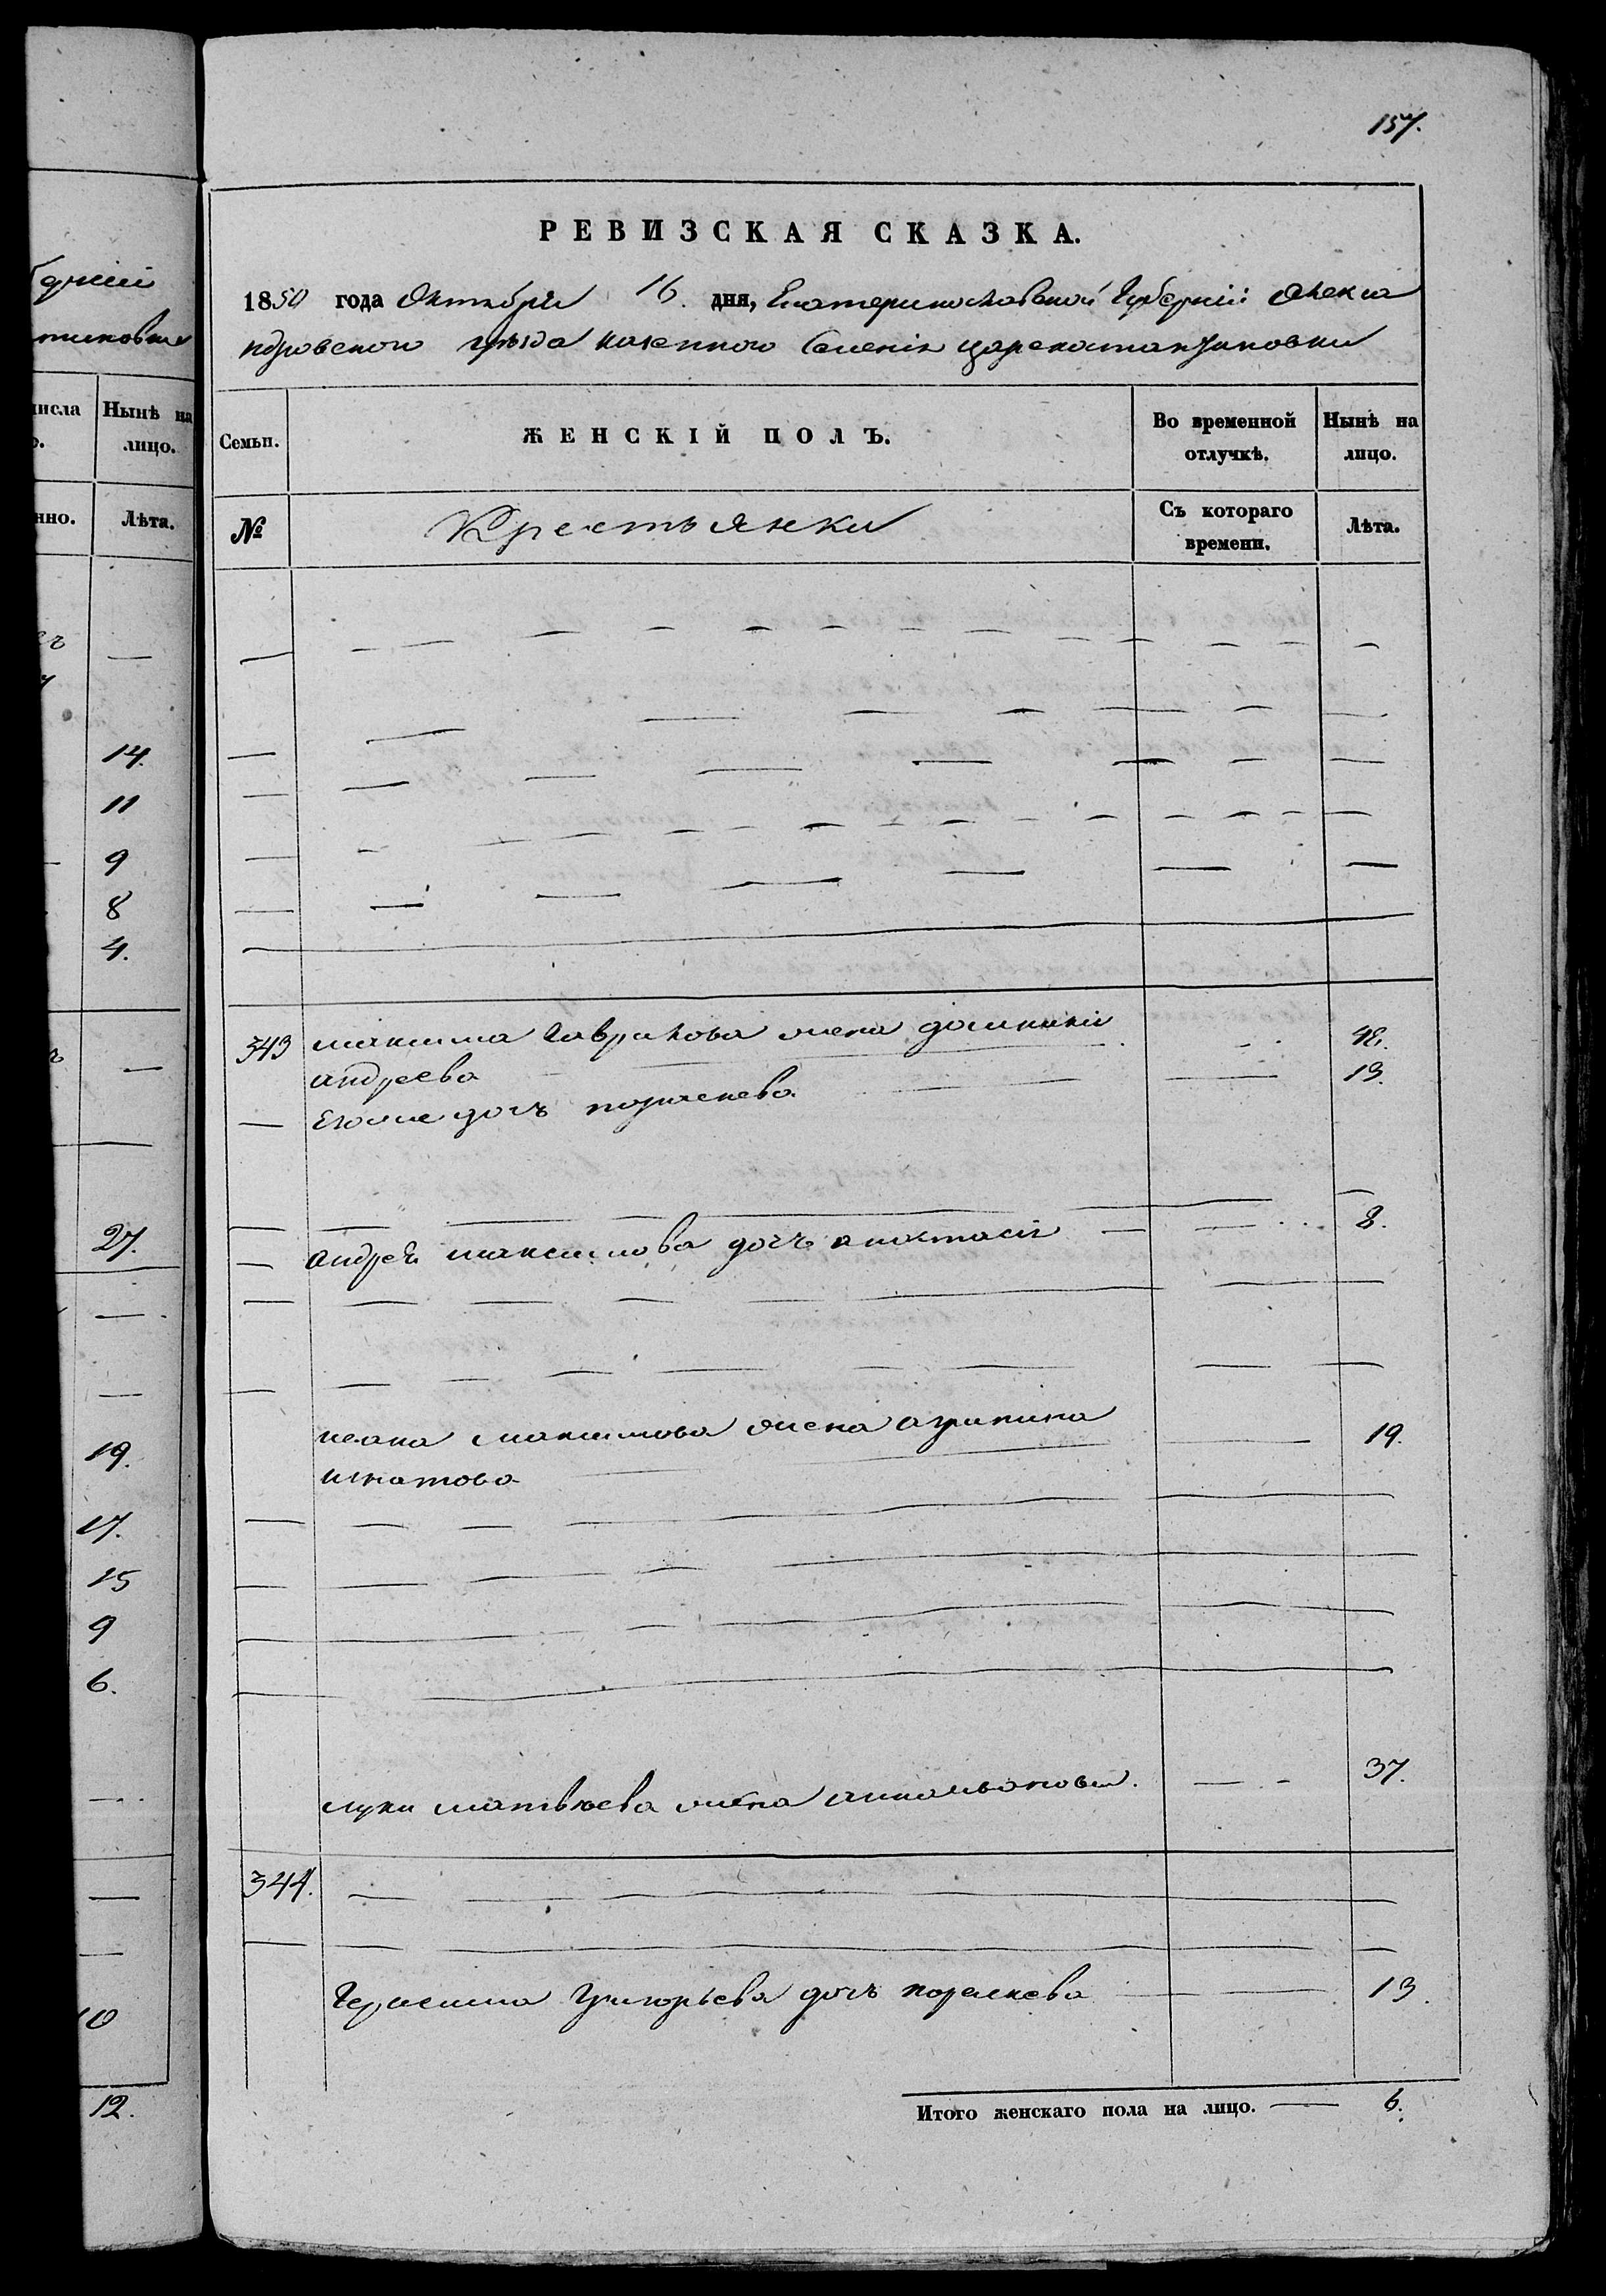 157.
РЕВИЗСКАЯ СКАЗКА.
1850 года Октября 16. дня, Екатеринославской Губернiи Алекса
ндровского уѣзда казенного Селенiя Царекостантиновки
Семьи.
ЖЕНСКIЙ ПОЛЪ.
Во временной отлучкѣ.
Нынѣ на лицо.
№
Крестьянки
Съ котораго времени.
Лѣта.
343 максима Гаврилова жена домникiя 48.
андреева
— Егоже дочь параскева 13.
— андрея максимова дочь анастасiя — 8.
ивана максимова жена агрипина 19.
игнатова
луки матвѣева жена 37.
344.
Герасима Григорьева дочь параскева 13.
Итого женскаго пола на лицо. — 6.
Нынѣ на лицо.
Лѣта.
14.
11
9
8
4.
27.
19.
17.
15
9
6.
10
12.